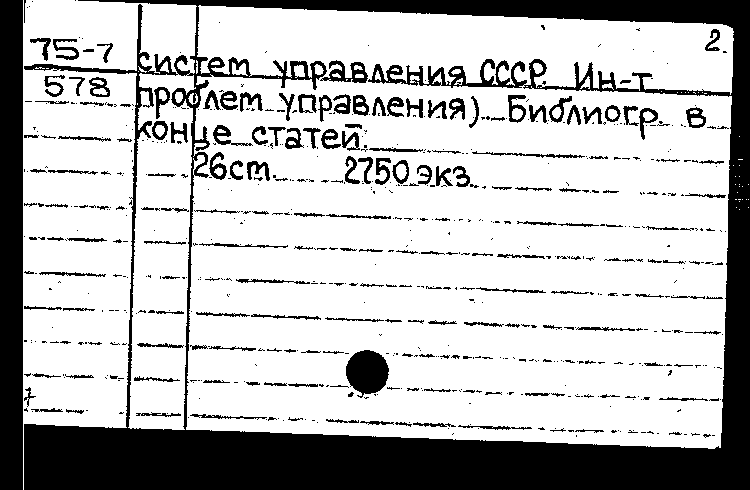 2.
75-7
578
систем управления СССР. Ин-т
проблем управления). Библиогр. в
конце статей.
26 ст. 2750 экз.